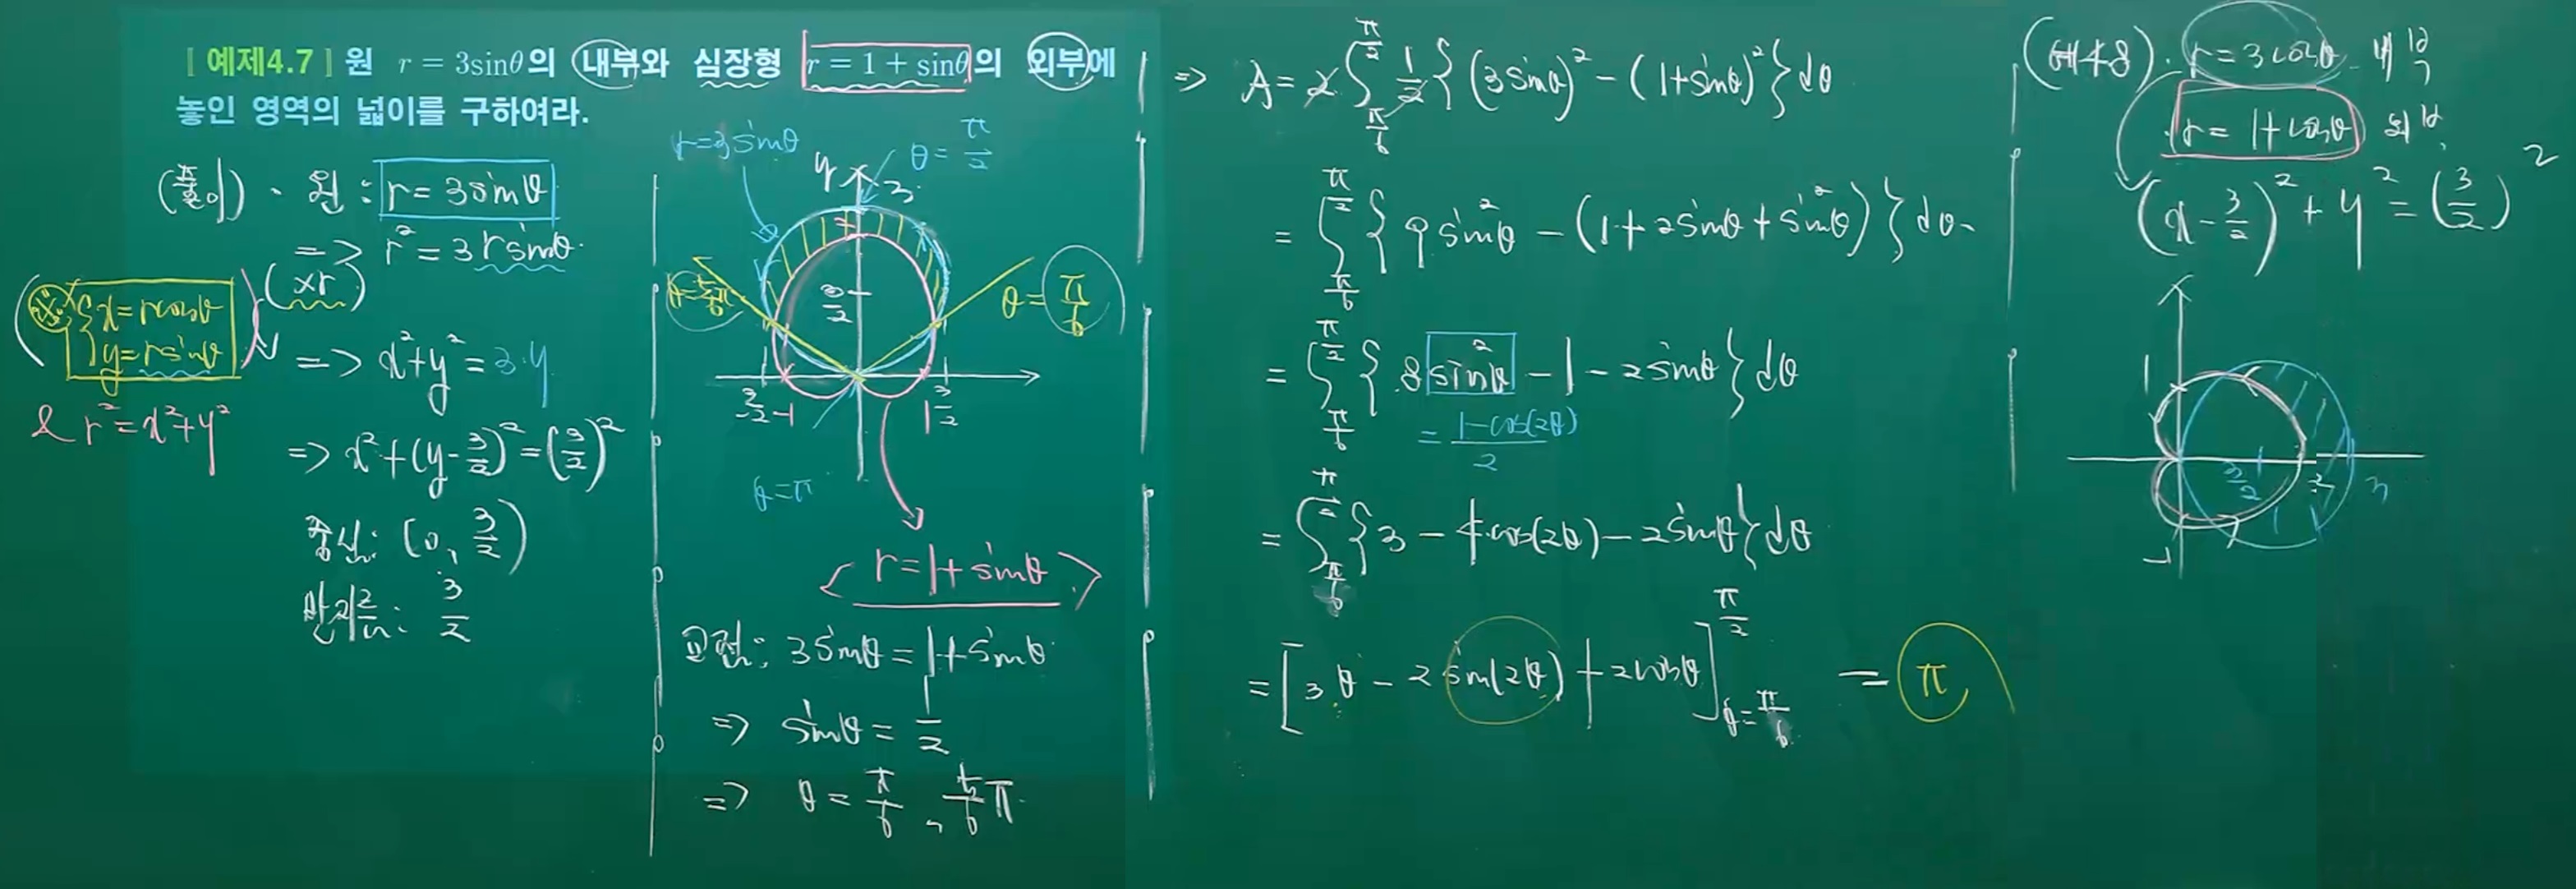 [예제4.7] 원 r = 3sinθ의 내부와 심장형 r = 1 + sinθ의 외부에
놓인 영역의 넓이를 구하여라.
(풀이) · 원 : r = 3sinθ
=> r² = 3rsinθ
(xr)
※ { x = rcosθ
y = rsinθ
& r² = x²+y²
=> x²+y² = 3·y
=> x²+(y-3/2)² = (3/2)²
중심: (0, 3/2)
반지름: 3/2
r=3sinθ
θ = π/2
y
3
θ = 5/6π
3/2
θ = π/6
-3/2 -1 1 3/2
θ = π
r = 1+sinθ
교점: 3sinθ = 1+sinθ
=> sinθ = 1/2
=> θ = π/6, 5/6 π
=> A = 2∫_{π/6}^{π/2} 1/2 { (3sinθ)² - (1+sinθ)² } dθ
= ∫_{π/6}^{π/2} { 9sin²θ - (1+2sinθ+sin²θ) } dθ
= ∫_{π/6}^{π/2} { 8sin²θ - 1 - 2sinθ } dθ
= (1-cos(2θ))/2
= ∫_{π/6}^{π/2} { 3 - 4·cos(2θ) - 2sinθ } dθ
= [ 3θ - 2sin(2θ) + 2cosθ ]_{θ=π/6}^{π/2} = π
(예4.8) · r = 3cosθ 내부
· r = 1+cosθ 외부
(x - 3/2)² + y² = (3/2)²
1
3/2 2 3
-1